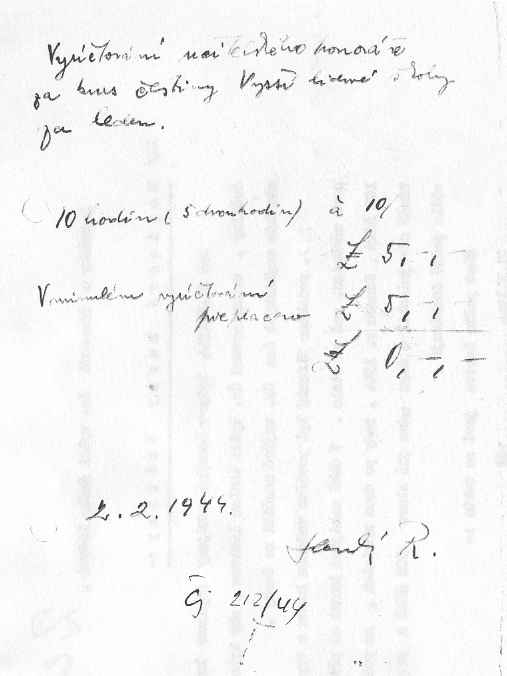 Vyúčtování učitelského honoráře
za kurs češtiny Vyšší lidové školy
za leden.
10 hodin (5 dvouhodin) à 10/
£ 5,-,-
V minulém vyúčtování
přeplaceno £ 5,-,-
£ 0,-,-
2. 2. 1944.
R.
Čj 212/44